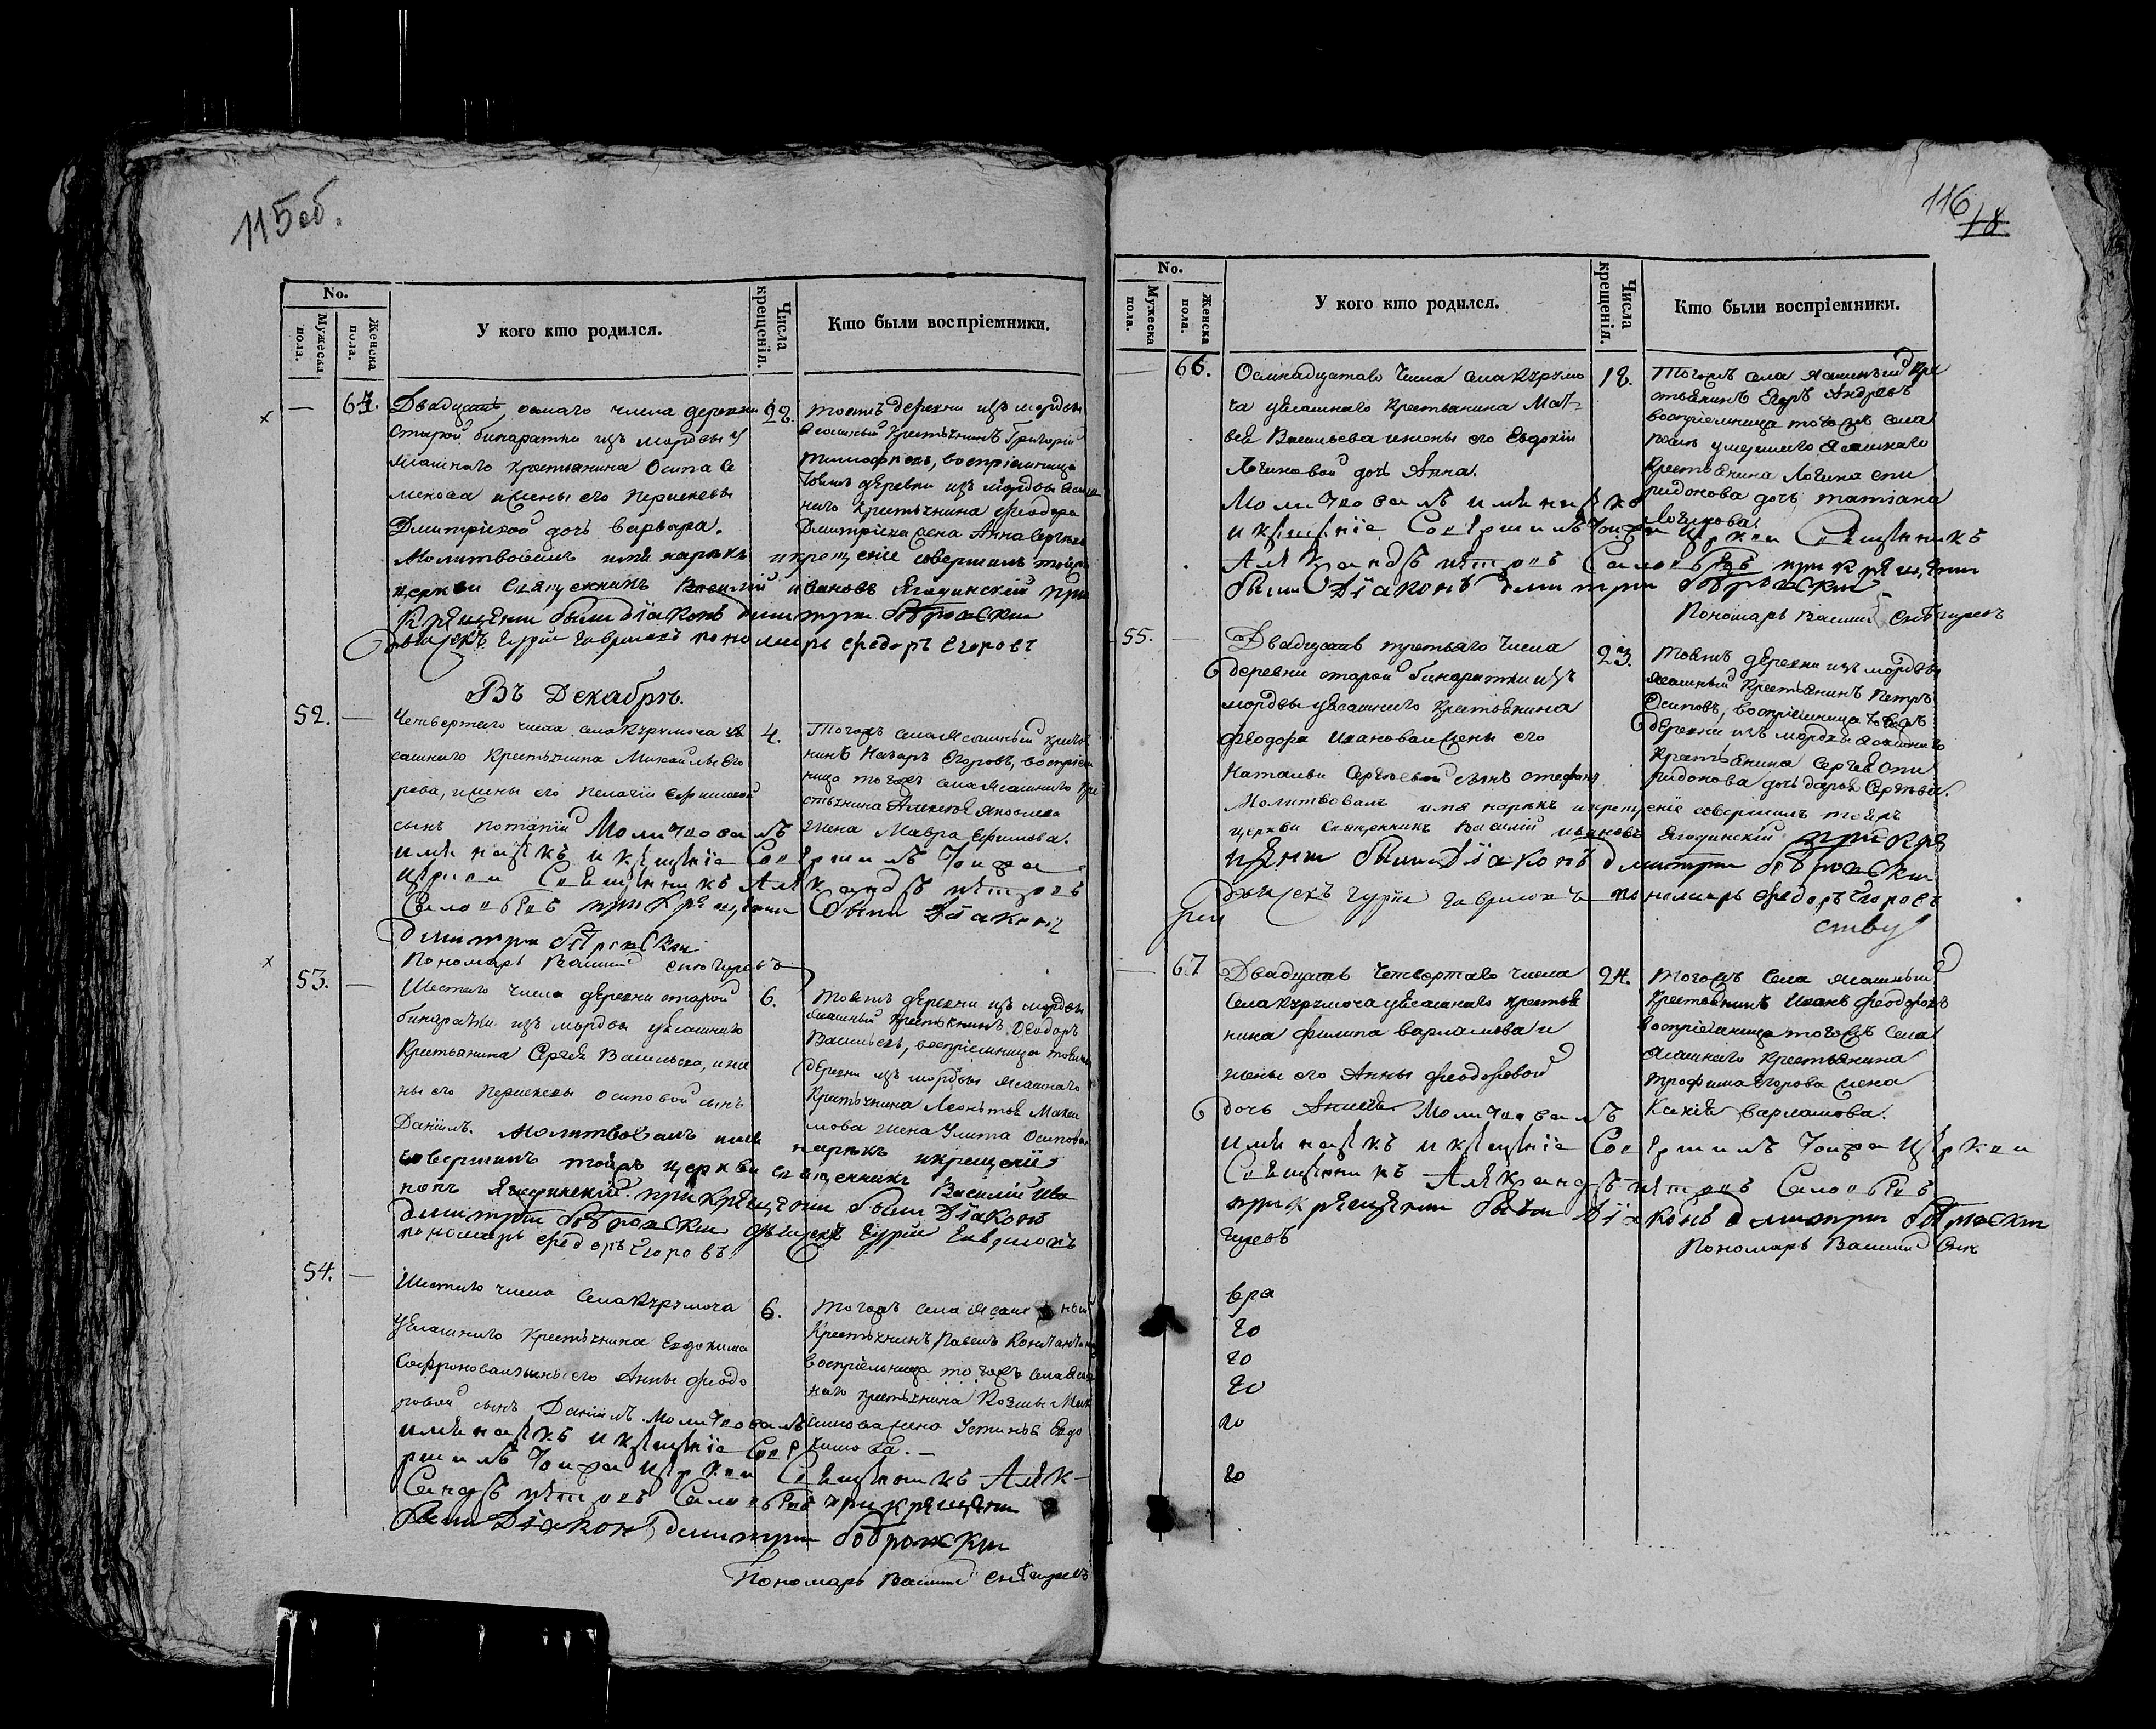 115 об.
No.
Мужеска пола.
Женска пола.
У кого кто родился.
Числа крещенія.
Кто были воспріемники.
Двадцать осмаго числа деревни
Старой бинаратки изъ мордвы у
ясашнаго крестьянина Осипа Се
менова и жены его Пераскевы
Дмитріевой дочь варвара.
Молитвовалъ имя нарѣкъ и крещеніе совершилъ тойже
церкви Священникъ Василій ивановъ Ягодинскій при
Крещеніи были діаконъ димитри
дьячекъ Гурій Гавриловъ пономарь Федоръ Егоровъ
28.
тояжъ деревни изъ мордвы
ясашный Крестьянинъ Григорій
Тимофѣевъ, воспріемница
тояжъ деревни изъ мордвы ясаш
наго крестьянина Феодора
Дмитріева жена Анна Сергѣева
Въ Декабрѣ.
52.
Четвертаго числа села Кярмоча уя
сашнаго Крестьянина Михайлы Его
рова, и жены его Пелагіи Ефимовой
сынъ Потапій Молитвовалъ
имя нарекъ и крещеніе Совершилъ тоижа
церкви Священникъ Александръ петровъ
Соловьевъ при крещеніи были діаконъ
димитри
Пономарь Василий Снегиревъ
4.
Тогожъ села ясашный крестья
нинъ Назаръ Егоровъ, воспріем
ница тогожъ села ясашнаго кре
стьянина Алексѣя Яковлева
жена Мавра Ефимова.
53.
Шестаго числа деревни старой
бинаратки изъ мордвы уясашнаго
Крестьянина Сергея Васильева, и же
ны его Пераскевы Осиповой сынъ
Даніилъ. Молитвовалъ имя нарѣкъ и крещеніе
совершилъ тойже церкви священникъ Василій Ива
новъ Ягодинскій при крещеніи были діаконъ
димитри дьячекъ Гурій Гавриловъ
пономарь Федоръ Егоровъ
6.
тояжъ деревни изъ мордвы
ясашный крестьянинъ Феодоръ
Васильевъ, воспріемница тояжъ
деревни изъ мордвы ясашнаго
Крестьянина Леонтья Макси
мова жена Улита Осипова
54.
Шестаго числа Села Кярмоча
уясашнаго Крестьянина Евдокима
Софронова и жены его Анны Феодо
ровой сынъ Даніилъ. Молитвовалъ
имя нарекъ и крещеніе Сове
ршилъ тоижа церкви Священникъ Алек-
Сандръ петровъ Соловьевъ при крещеніи
были діаконъ димитри
Пономарь Василий Снегиревъ
6.
тогожъ села ясашный
Крестьянинъ Павелъ Констант
воспріемница тогожъ села ясаш
наго крестьянина Козмы Мак
симова жена Устинья Евдо
кимова.
116
18
No.
Мужеска пола.
Женска пола.
У кого кто родился.
Числа крещенія.
Кто были воспріемники.
66.
Осмнадцатаго числа села Кярмо
ча уясашнаго Крестьянина Мат-
вея Васильева и жены его Евдокіи
Логиновой дочь Анна.
Молитвовалъ имя нарекъ
и крещеніе Совершилъ тоижа церкви Священникъ
Александръ петровъ Соловьевъ при крещении
были Діаконъ димитри
Пономарь Василий Снегиревъ
18.
Тогожъ села ясашный кре
стьянинъ Егоръ Андреевъ
воспріемница тогожъ села
умершего ясашнаго
Крестьянина Логина Спи
ридонова дочь татіана
Логинова.
55.
Двадцать третьяго числа
деревни старой бинаратки изъ
мордвы уясашнаго Крестьянина
Феодора Иванова и жены его
Натальи Сергѣевой сынъ Стефанъ
Молитвовалъ имя нарѣкъ и крещеніе совершилъ тойже
церкви Священникъ Василій ивановъ Ягодинскій при кре
щении были діаконъ димитри
дьячекъ Гурій Гавриловъ пономарь Федоръ Егоровъ
23.
тояжъ деревни изъ мордвы
ясашный Крестьянинъ Петръ
Осиповъ, воспріемница тояжъ
деревни изъ мордвы ясашнаго
Крестьянина Сергея Спи
ридонова дочь дарья Сергѣева.
67
Двадцать четвертаго числа
села Кярмоча уясашнаго крестья
нина Филипа варламова и
жены его Анны Феодоровой
дочь Анисія Молитвовалъ
имя нарекъ и крещеніе Совершилъ тоижа Церкви
Священникъ Александръ петровъ Соловьевъ
при крещении были Діаконъ димитри
Пономарь Василий Сне
гиревъ
24.
тогожъ Села ясашный
Крестьянинъ Иванъ Феодоровъ
воспріемница тогожъ села
ясашнаго Крестьянина
трофима Егорова жена
Ксенія варламова.
вра
го
го
го
го
го